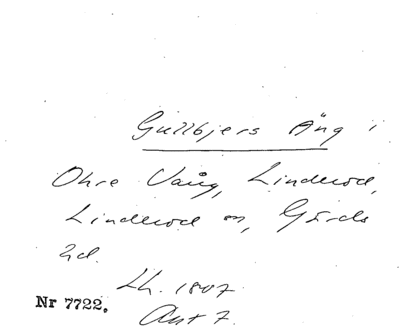 Gullbjers Äng i
Ohre Vång, Linderod,
Linderod sn, Gärds
hd.
Lh. 1807
Akt 7.
Nr 7722.